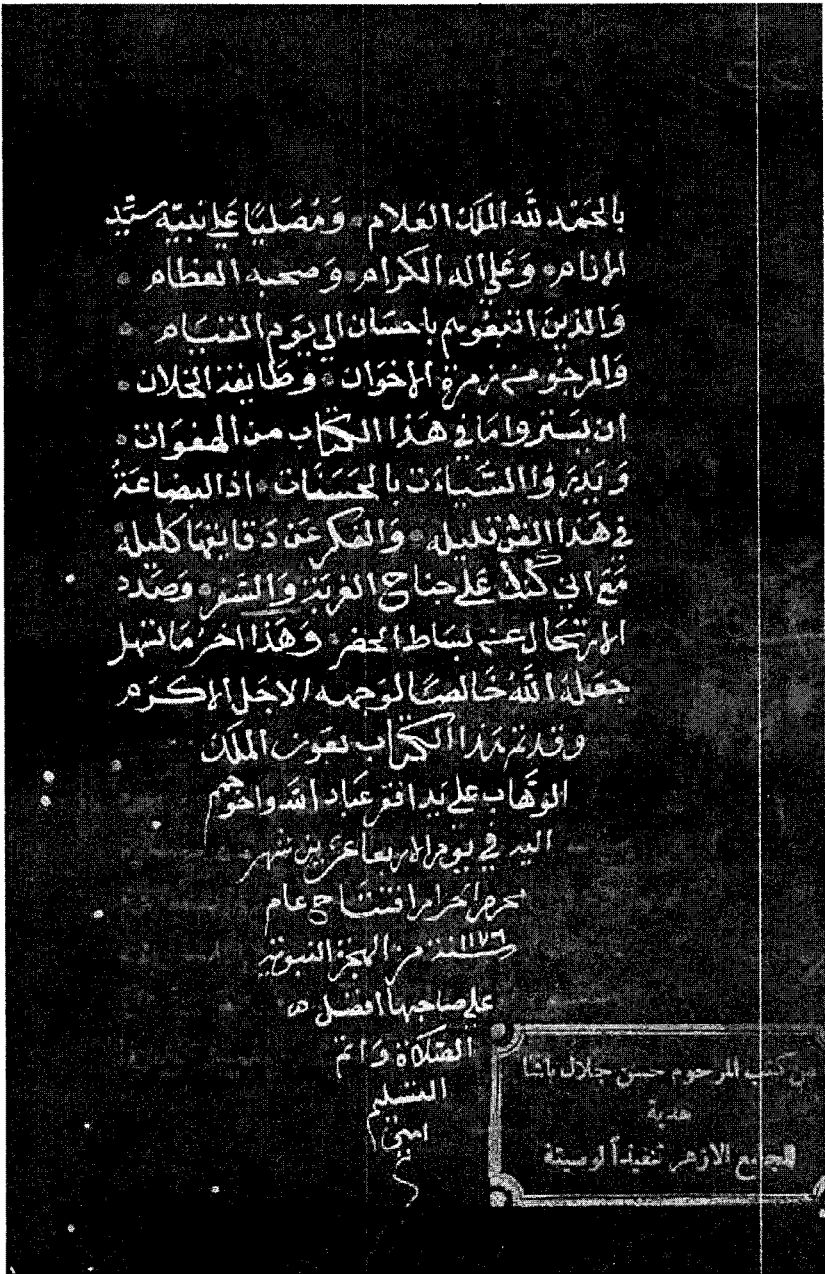 بالحمد لله الملك العلام ۰ ومصليا على نبيه سيد
الانام ۰ وعلى اله الكرام ۰ وصحبه العظام ۰
والذين اتبعوهم باحسان الى يوم القيام ۰
والمرجو من زمرة الاخوان ۰ وطايفة الخلان ۰
ان يستروا ما في هذا الكتاب من الهفوات ۰
ويدرؤا السيات بالحسنات ۰ اذ البضاعة
في هذا الفن قليله ۰ والفكر عن دقايقها كليله
مع اني كنت على جناح الغربة والسفر ۰ وصدد
الارتحال عن بساط الحضر ۰ وهذا اخر ما تسهل
جعله الله خالصا لوجهه الاجل الاكرم
وقد تم هذا الكتاب بعون الملك
الوهاب على يد افقر عباد الله واحوجهم
اليه في يوم الاربعا عشرين شهر
محرم الحرام افتتاح عام
سنة ١١٧٦ من الهجرة النبوية
على صاحبها افضل
الصلاة واتم
التسليم
امين
من كتب المرحوم حسن جلال باشا
هدية
للجامع الازهر تنفيذاً لوصيته